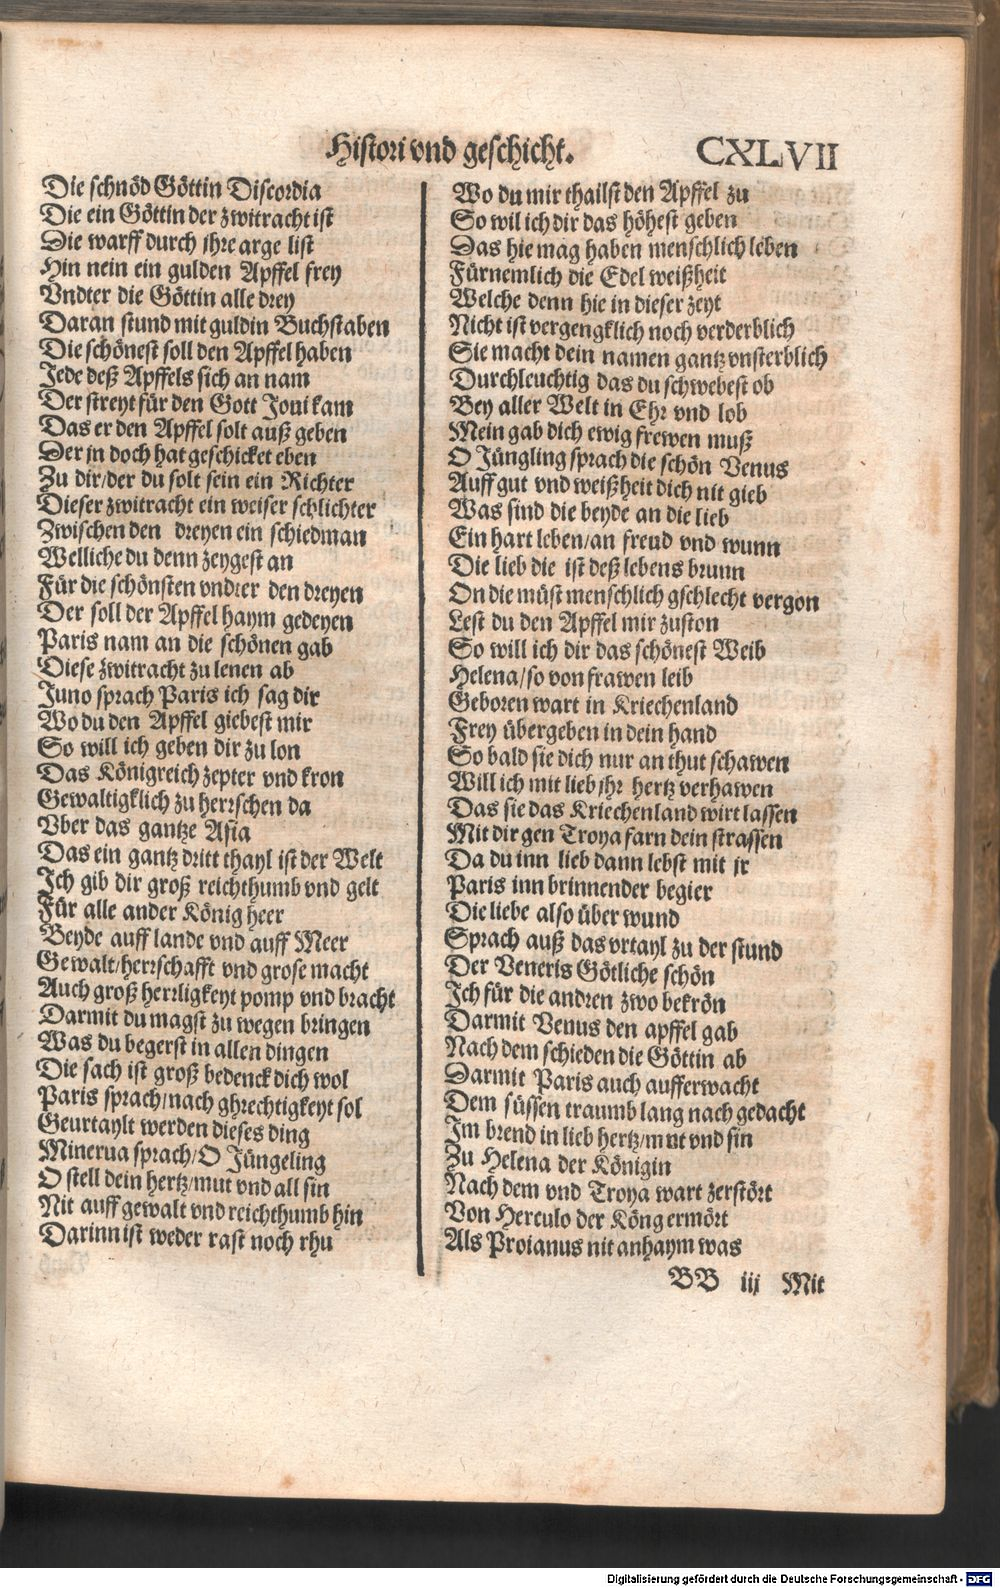 Histori vnd geschicht. CXLVII
Die schnöd Göttin Discordia
Die ein Göttin der zwitracht ist
Die warff durch jhre arge list
Hin nein ein gulden Apffel frey
Vndter die Göttin alle drey
Daran stund mit guldin Buchstaben
Die schönest soll den Apffel haben
Jede deß Apffels sich an nam
Der streyt für den Gott Joui kam
Das er den Apffel solt auß geben
Der jn doch hat geschicket eben
Zu dir/der du solt sein ein Richter
Dieser zwitracht ein weiser schlichter
Zwischen den dreyen ein schiedman
Welliche du denn zeygest an
Für die schönsten vndter den dreyen
Der soll der Apffel haym gedeyen
Paris nam an die schönen gab
Diese zwitracht zu lenen ab
Juno sprach Paris ich sag dir
Wo du den Apffel giebest mir
So will ich geben dir zu lon
Das Königreich zepter vnd kron
Gewaltigklich zu herrschen da
Vber das gantze Asia
Das ein gantz dritt thayl ist der Welt
Ich gib dir groß reichthumb vnd gelt
Für alle ander König heer
Beyde auff lande vnd auff Meer
Gewalt/herrschafft vnd grose macht
Auch groß herrligkeyt pomp vnd bracht
Darmit du magst zu wegen bringen
Was du begerst in allen dingen
Die sach ist groß bedenck dich wol
Paris sprach/nach ghrechtigkeyt sol
Geurtaylt werden dieses ding
Minerua sprach/O Jüngeling
O stell dein hertz/mut vnd all sin
Nit auff gewalt vnd reichthumb hin
Darinn ist weder rast noch rhu
Wo du mir thailst den Apffel zu
So wil ich dir das höhest geben
Das hie mag haben menschlich leben
Fürnemlich die Edel weißheit
Welche denn hie in dieser zeyt
Nicht ist vergengklich noch verderblich
Sie macht dein namen gantz vnsterblich
Durchleuchtig das du schwebest ob
Bey aller Welt in Ehr vnd lob
Mein gab dich ewig frewen muß
O Jüngling sprach die schön Venus
Auff gut vnd weißheit dich nit gieb
Was sind die beyde an die lieb
Ein hart leben/an freud vnd wunn
Die lieb die ist deß lebens brunn
On die müst menschlich gschlecht vergon
Lest du den Apffel mir zuston
So will ich dir das schönest Weib
Helena/so von frawen leib
Geboren wart in Kriechenland
Frey übergeben in dein hand
So bald sie dich nur an thut schawen
Will ich mit lieb jhr hertz verhawen
Das sie das Kriechenland wirt lassen
Mit dir gen Troya farn dein strassen
Da du inn lieb dann lebst mit jr
Paris inn brinnender begier
Die liebe also über wund
Sprach auß das vrtayl zu der stund
Der Veneris Götliche schön
Ich für die andren zwo bekrön
Darmit Venus den apffel gab
Nach dem schieden die Göttin ab
Darmit Paris auch aufferwacht
Dem süssen traumb lang nach gedacht
Im brend in lieb hertz/mut vnd sin
Zu Helena der Königin
Nach dem vnd Troya wart zerstört
Von Herculo der Köng ermört
Als Proianus nit anhaym was
BB iij Mit
Digitalisierung gefördert durch die Deutsche Forschungsgemeinschaft - DFG